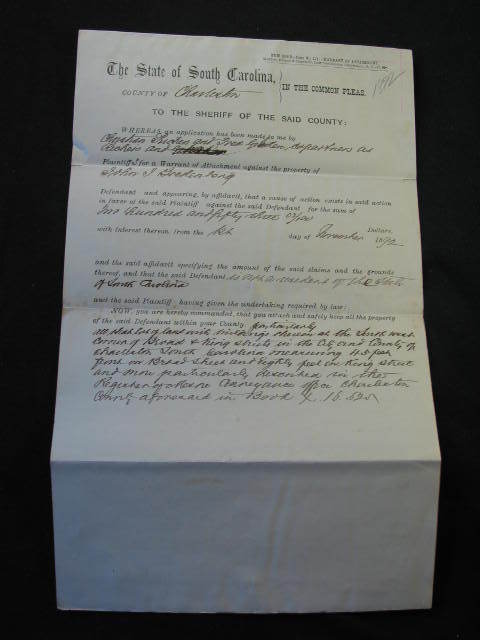 WARRANT OF ATTACHMENT
The State of South Carolina,
IN THE COMMON PLEAS.
1892
COUNTY OF Charleston
TO THE SHERIFF OF THE SAID COUNTY:
WHEREAS an application has been made to me by
Christian and Fred copartners as
and
Plaintiff s for a Warrant of Attachment against the property of
John J
Defendant and appearing, by affidavit, that a cause of action exists in said action
in favor of the said Plaintiff against the said Defendant for the sum of
Two Hundred and fifty three Dollars,
with interest thereon from the 1st day of November 1892
and the said affidavit specifying the amount of the said claims and the grounds
thereof, and that the said Defendant is not a resident of the State
of South Carolina
and the said Plaintiff having given the undertaking required by law:
NOW, you are hereby commanded, that you attach and safely keep all the property
of the said Defendant within your County particularly
All that lot of land with buildings thereon at the South west
corner of Broad & King streets in the City and County of
Charleston South Carolina measuring feet
front on Broad Street and eighty feet on King street
and more particularly described in the
Register of Mesne Conveyance office Charleston
County aforesaid in Book